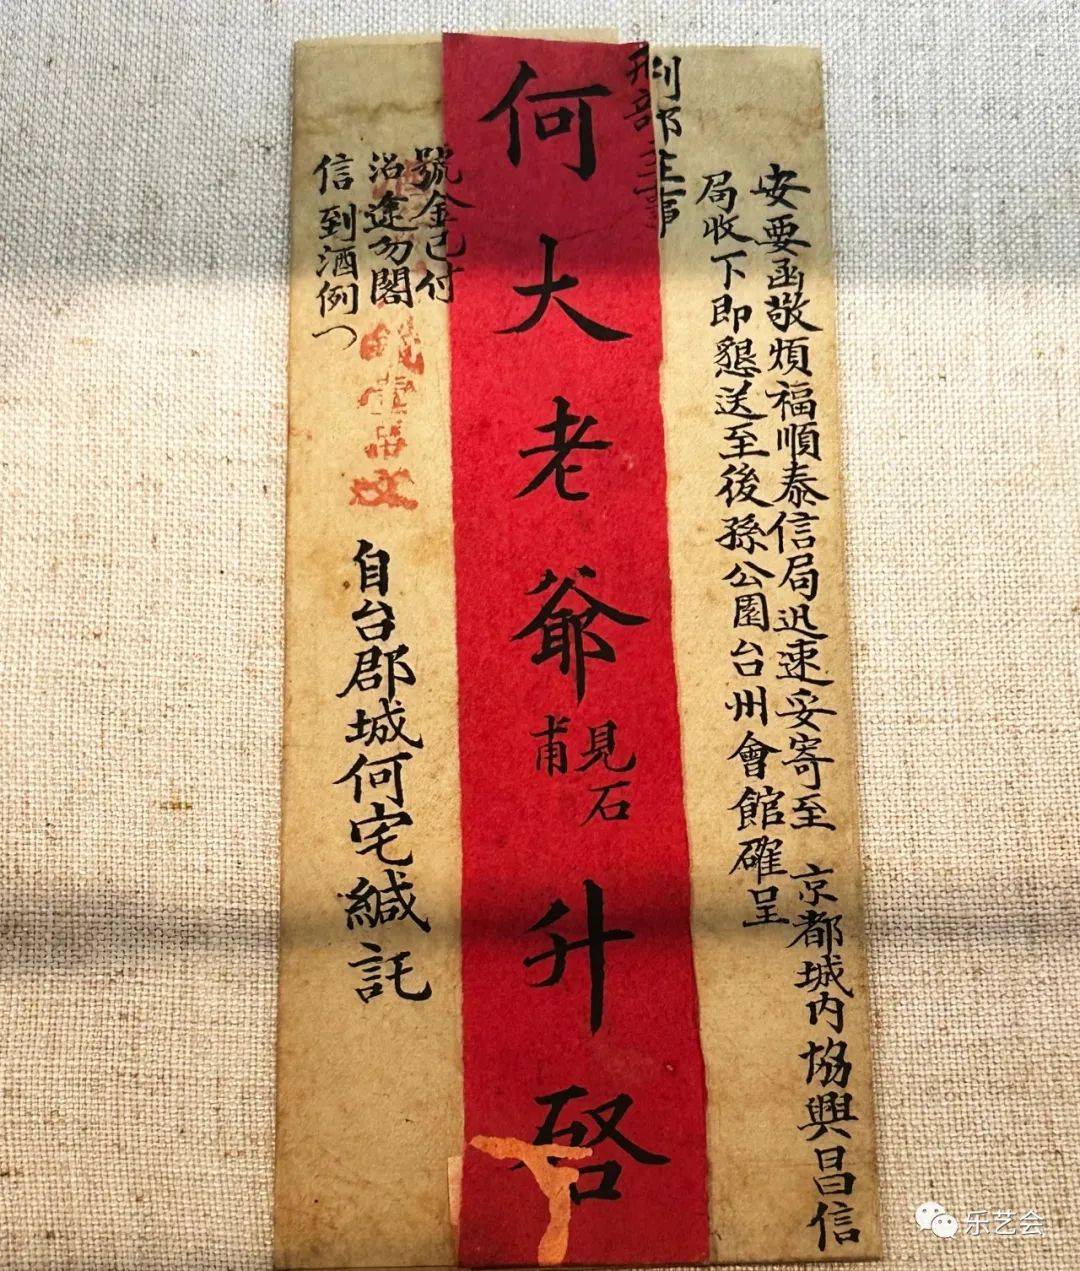 安要函敬煩福順泰信局迅速妥寄至 京都城内協興昌信
局收下即懇送至後孫公園台州會館確呈
刑部主事
何大老爺 見石甫 升啓
號金已付
沿途勿閣
信到酒例
自台郡城何宅緘託
乐艺会